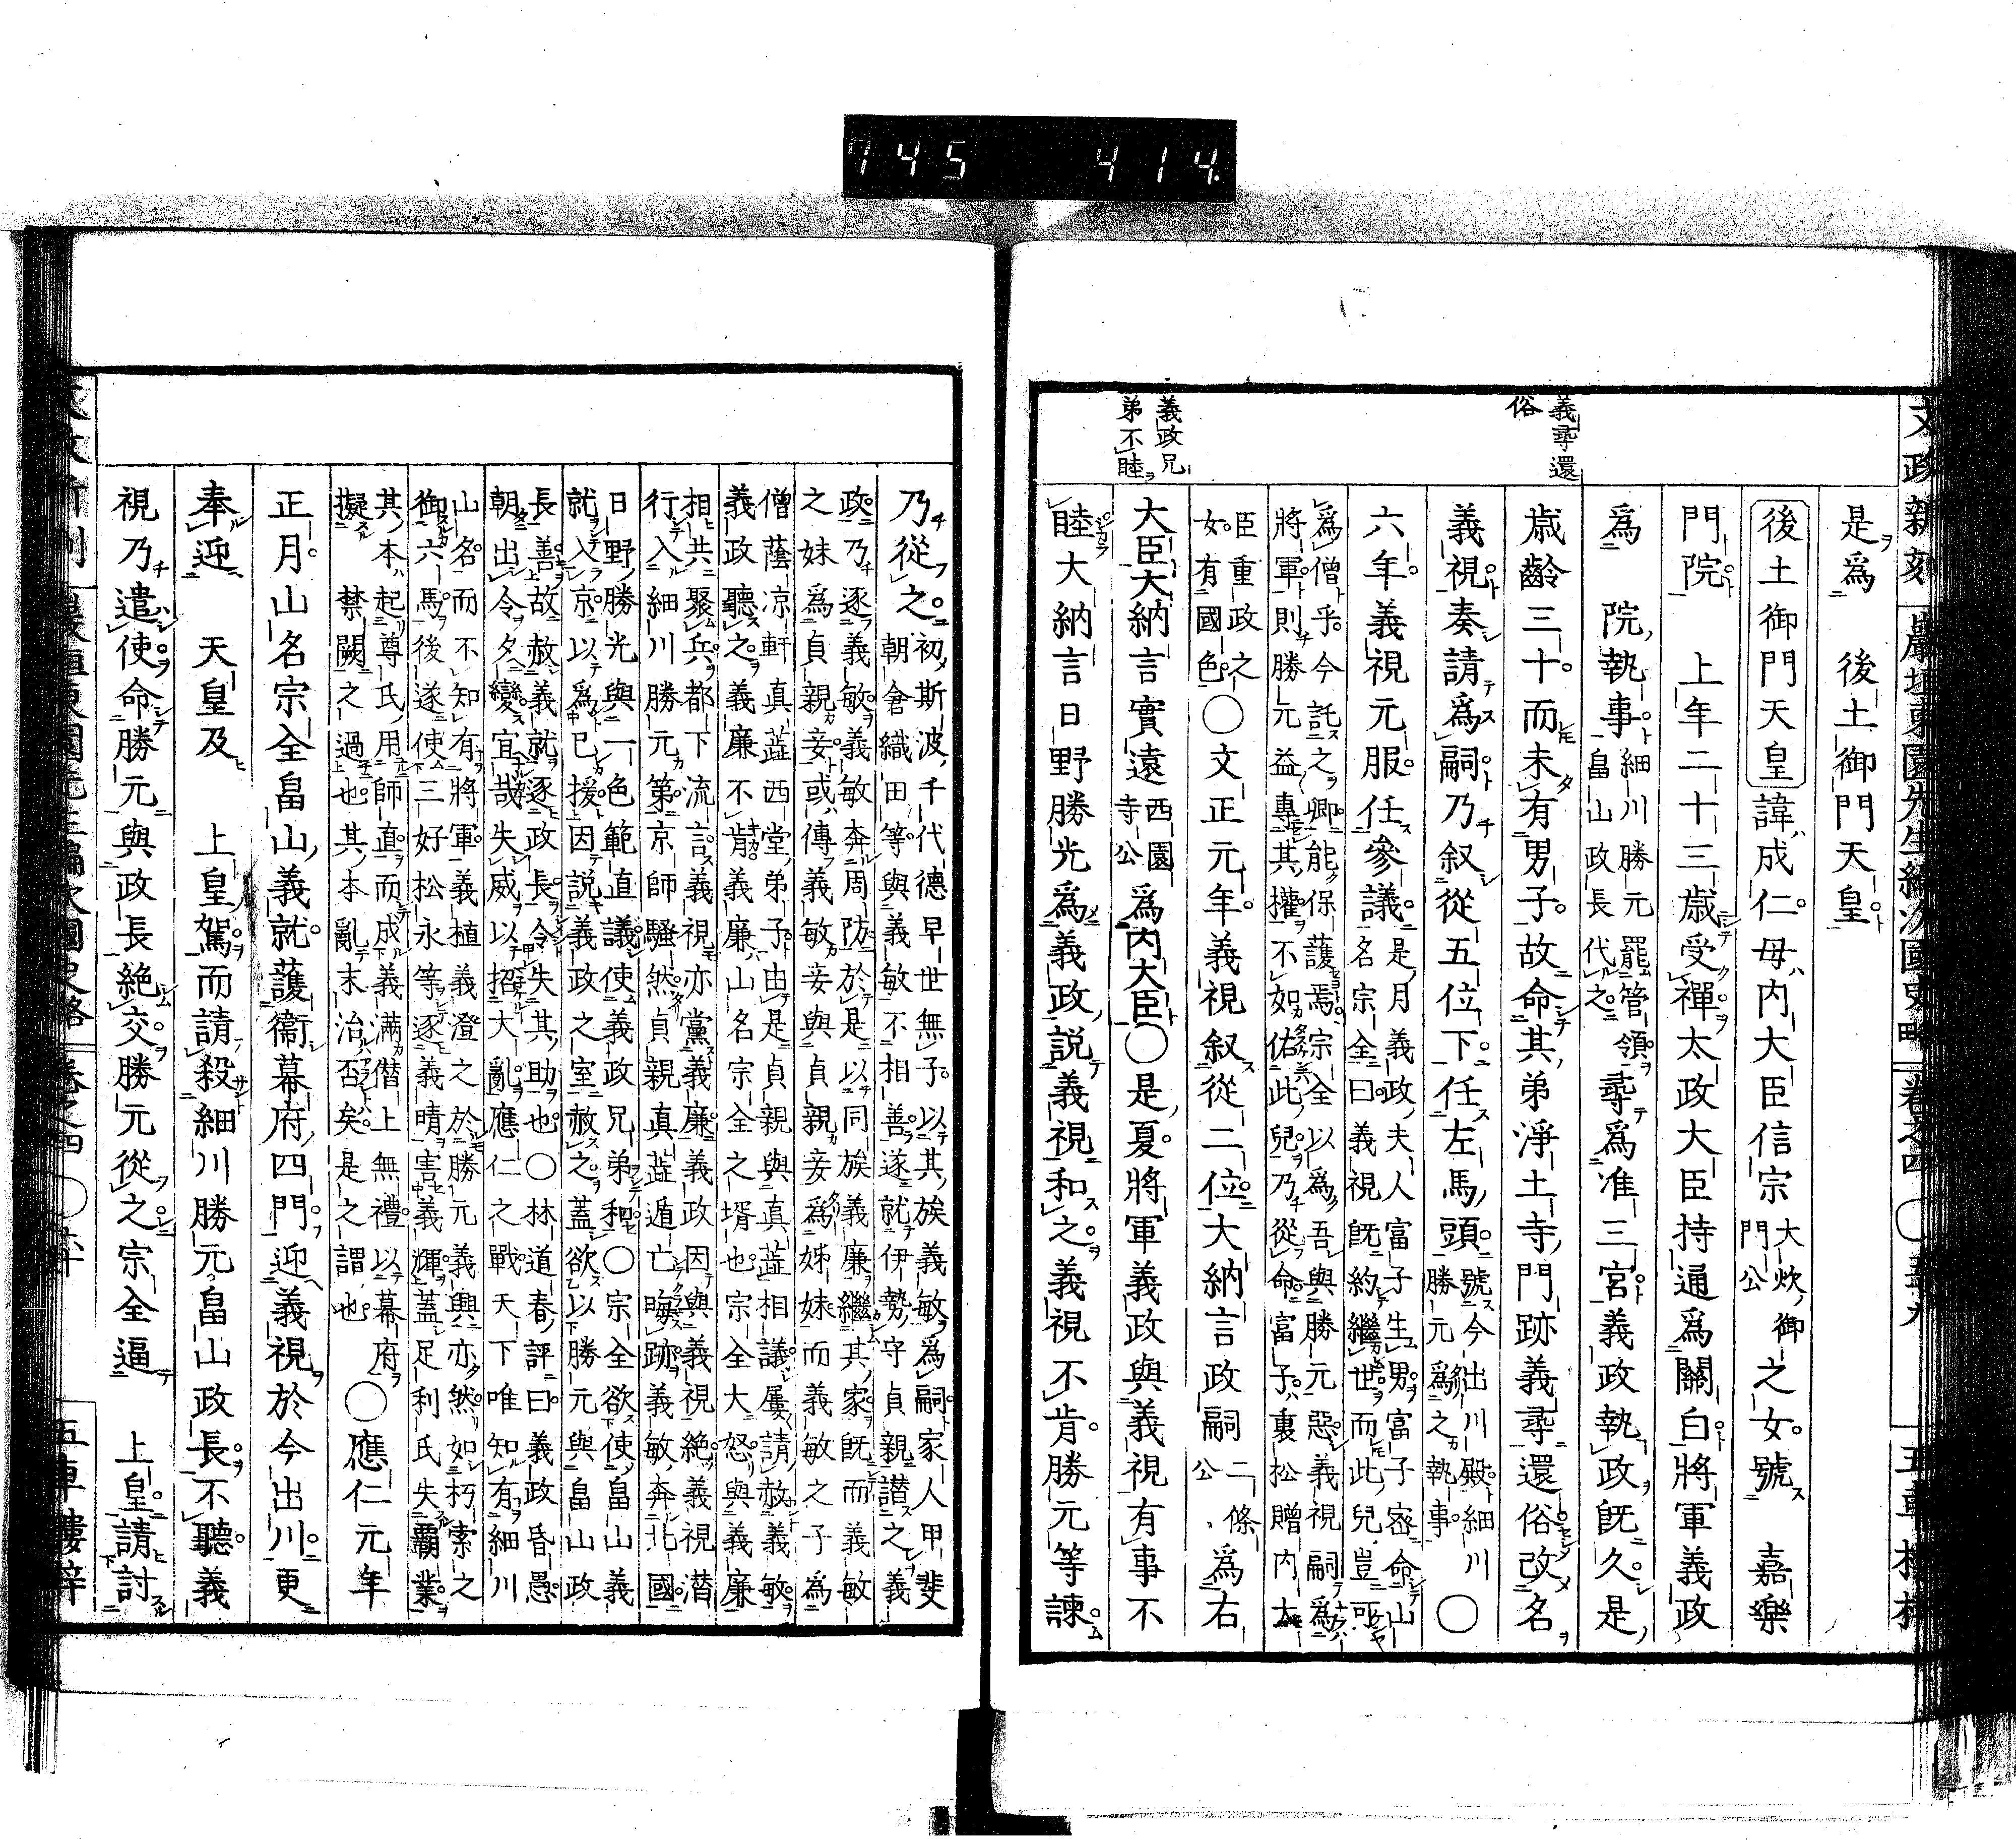 745 414.
文政新刻 巖垣東園先生編次國史略 卷之四 ○ 五車樓梓
是爲 後土御門天皇
後土御門天皇諱成仁母内大臣信宗大炊御門公之女號 嘉樂
門院 上年二十三歳受禪太政大臣持通爲關白將軍義政
爲 院執事細川勝元罷管領畠山政長代之尋爲准三宮義政執政既久是
歳齡三十而未有男子故命其弟淨土寺門跡義尋還俗改名
義尋還
俗
義視奏請爲嗣乃叙從五位下任左馬頭號今出川殿細川勝元爲之執事○
六年義視元服任參議是月義政夫人富子生男富子密命山名宗全曰義視既約繼世而此兒豈可
爲僧乎今託之卿能保護焉宗全以爲吾與勝元惡義視嗣爲將軍則勝元益專其權不如佑此兒乃從命富子裏松贈内大
臣重政之女有國色○文正元年義視叙從二位大納言政嗣二條公爲右
大臣大納言實遠西園寺公爲内大臣○是夏將軍義政與義視有事不
義政兄
弟不睦
睦大納言日野勝光爲義政説義視和之義視不肯勝元等諫
乃從之初斯波千代德早世無子以其族義敏爲嗣家人甲斐朝倉織田等與義敏不相善遂就伊勢守貞親讃之義
政乃逐義敏義敏奔周防於是以同族義廉繼其家既而義敏之妹爲貞親妾或傳義敏妾與貞親妾爲姊妹而義敏之子爲
僧蔭涼軒真蘂西堂弟子由是貞親與真蘂相議屢請赦義敏義政聽之義廉不肯義廉山名宗全之壻也宗全大怒與義廉
相共聚兵都下流言義視亦黨義廉義政因與義視絶義視潜行入細川勝元第京師騷然貞親真蘂遁亡晦跡義敏奔北國
日野勝光與一色範直議使義政兄弟和○宗全欲使畠山義就入京以爲己援因説義政之室赦之蓋欲以勝元與畠山政
長善故赦義就逐政長令失其助也○林道春評曰義政昏愚朝出令夕變宜哉失威以招大亂應仁之戰天下唯知有細川
山名而不知有將軍義植義澄之於勝元義興亦然如朽索之御六馬後遂使三好松永等逐義晴害義輝蓋足利氏失霸業
其本起尊氏用師直而成義滿僣上無禮以幕府擬 禁闕之過也其本亂末治否矣是之謂也○應仁元年
正月山名宗全畠山義就護衞幕府四門迎義視於今出川更
奉迎 天皇及 上皇駕而請殺細川勝元畠山政長不聽義
視乃遣使命勝元與政長絶交勝元從之宗全逼 上皇請討
五車樓梓